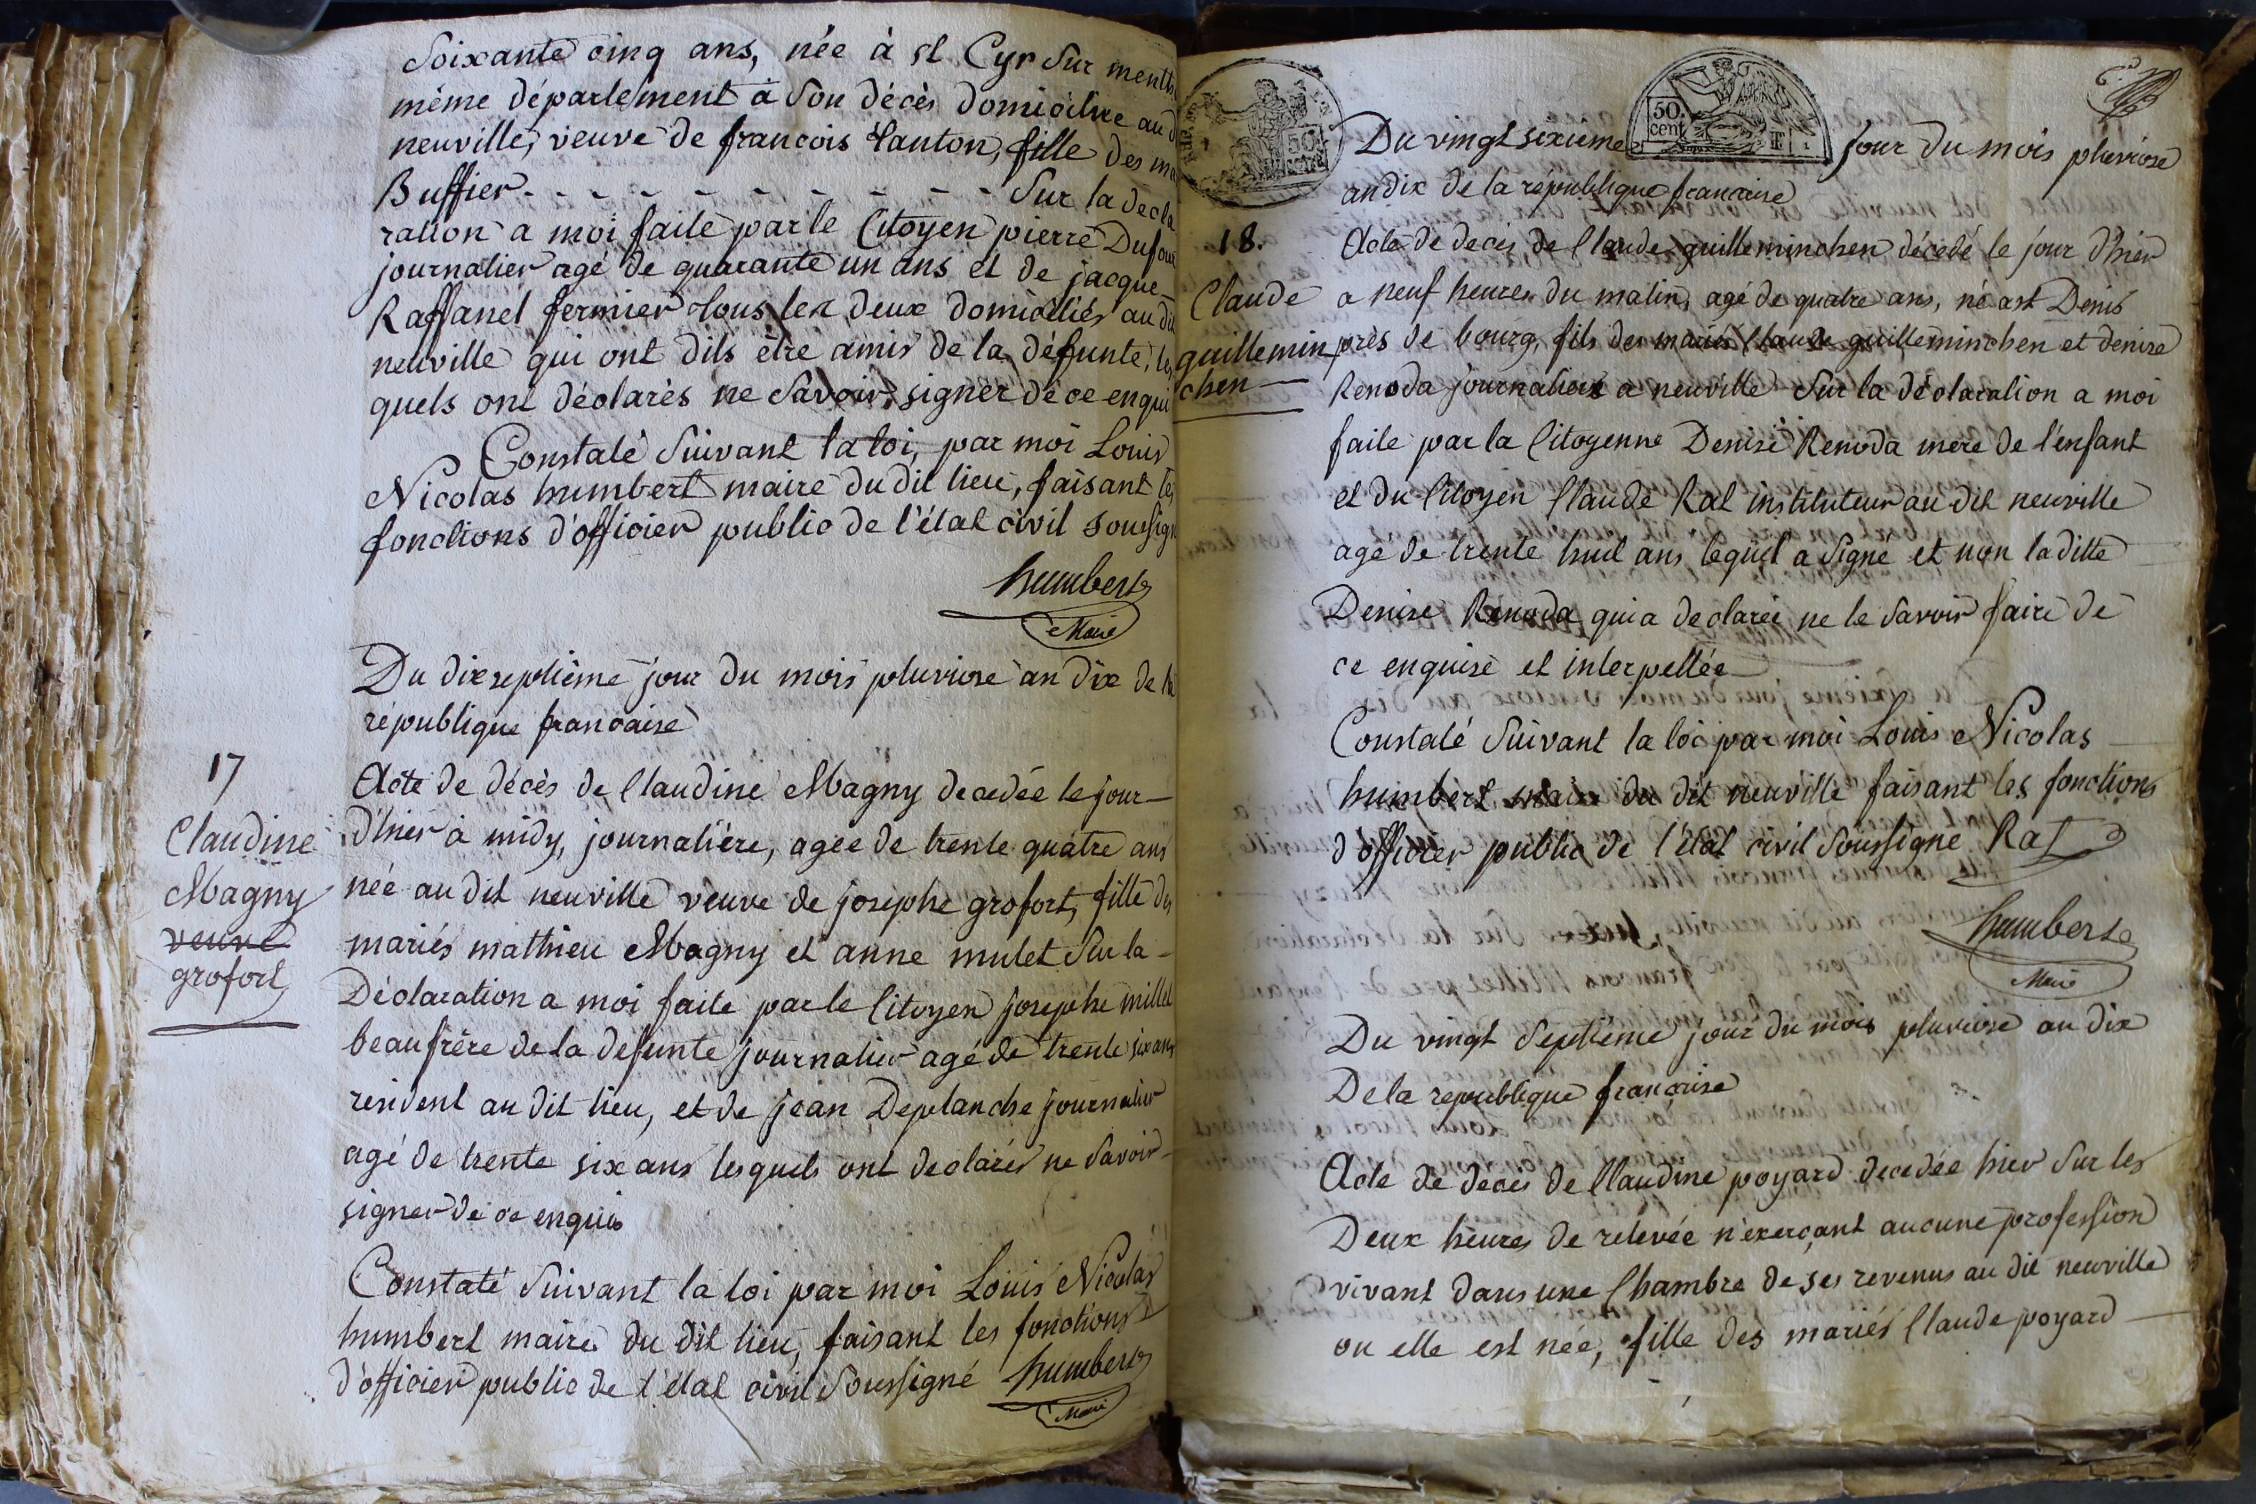 Soixante cinq ans, née à st Cyr sur
même département à son décès domicilire au
neuville, veuve de francois tanton, fille des
Buffier - - - - - - - - - - Sur la decla
ration a moi faite par le Citoyen pierre Dufour
journalier agé de quarante un ans et de jacque
Raffanel fermier tous les deux domiciliés au dit
neuville qui ont dits être amis de la défunte, les
quels ont déclarés ne savoir signer de ce enquis
Constaté suivant la loi, par moi Louis
Nicolas humbert maire du dit lieu, faisant les
fonctions d'officier public de l'état civil soussigné
humbert
Maire
Du dix septième jour du mois pluviose an dix de la
république francaise
17
Claudine
Magny
veuve
grofort
Acte de décès de Claudine Magny decedée le jour
d'hier à midy, journalière, agée de trente quatre ans
née au dit neuville veuve de josephe grofort, fille des
mariés mathieu Magny et anne mulet Sur la
Déclaration a moi faite par le Citoyen josephe millet
beaufrère de la defunte journalier agé de trente six ans
resident au dit lieu, et de jean Deplanche journalier
agé de trente six ans lesquels ont declarés ne savoir
signer de ce enquis
Constaté suivant la loi par moi Louis Nicolas
humbert maire du dit lieu, faisant les fonctions
d'officier public de l'état civil soussigné humbert
Maire
50
cent
Du vingt sixieme jour du mois pluviose
an dix de la république francaise
18.
Claude
guillemin
chen
Acte de decès de Claude guilleminchen décedé le jour d'hier
a neuf heures du matin, agé de quatre ans, né a st Denis
près de bourg, fils des mariés Claude guilleminchen et denise
Renoda journaliers a neuville Sur la déclaration a moi
faite par la Citoyenne Denise Renoda mere de l'enfant
et du Citoyen Claude Rat instituteur au dit neuville
agé de trente huit ans lequel a signé et non la ditte
Denise Renoda qui a declarée ne le savoir faire de
ce enquise et interpellée
Constaté suivant la loi par moi Louis Nicolas
humbert maire du dit neuville faisant les fonctions
d'officier public de l'état civil soussigné Rat
humbert
Maire
Du vingt septième jour du mois pluviose an dix
De la republique francaise
Acte de decès de Claudine poyard decedée hier sur les
Deux heures de relevée n'exerçant aucune profession
vivant dans une Chambre de ses revenus au dit neuville
ou elle est née, fille des mariés Claude poyard